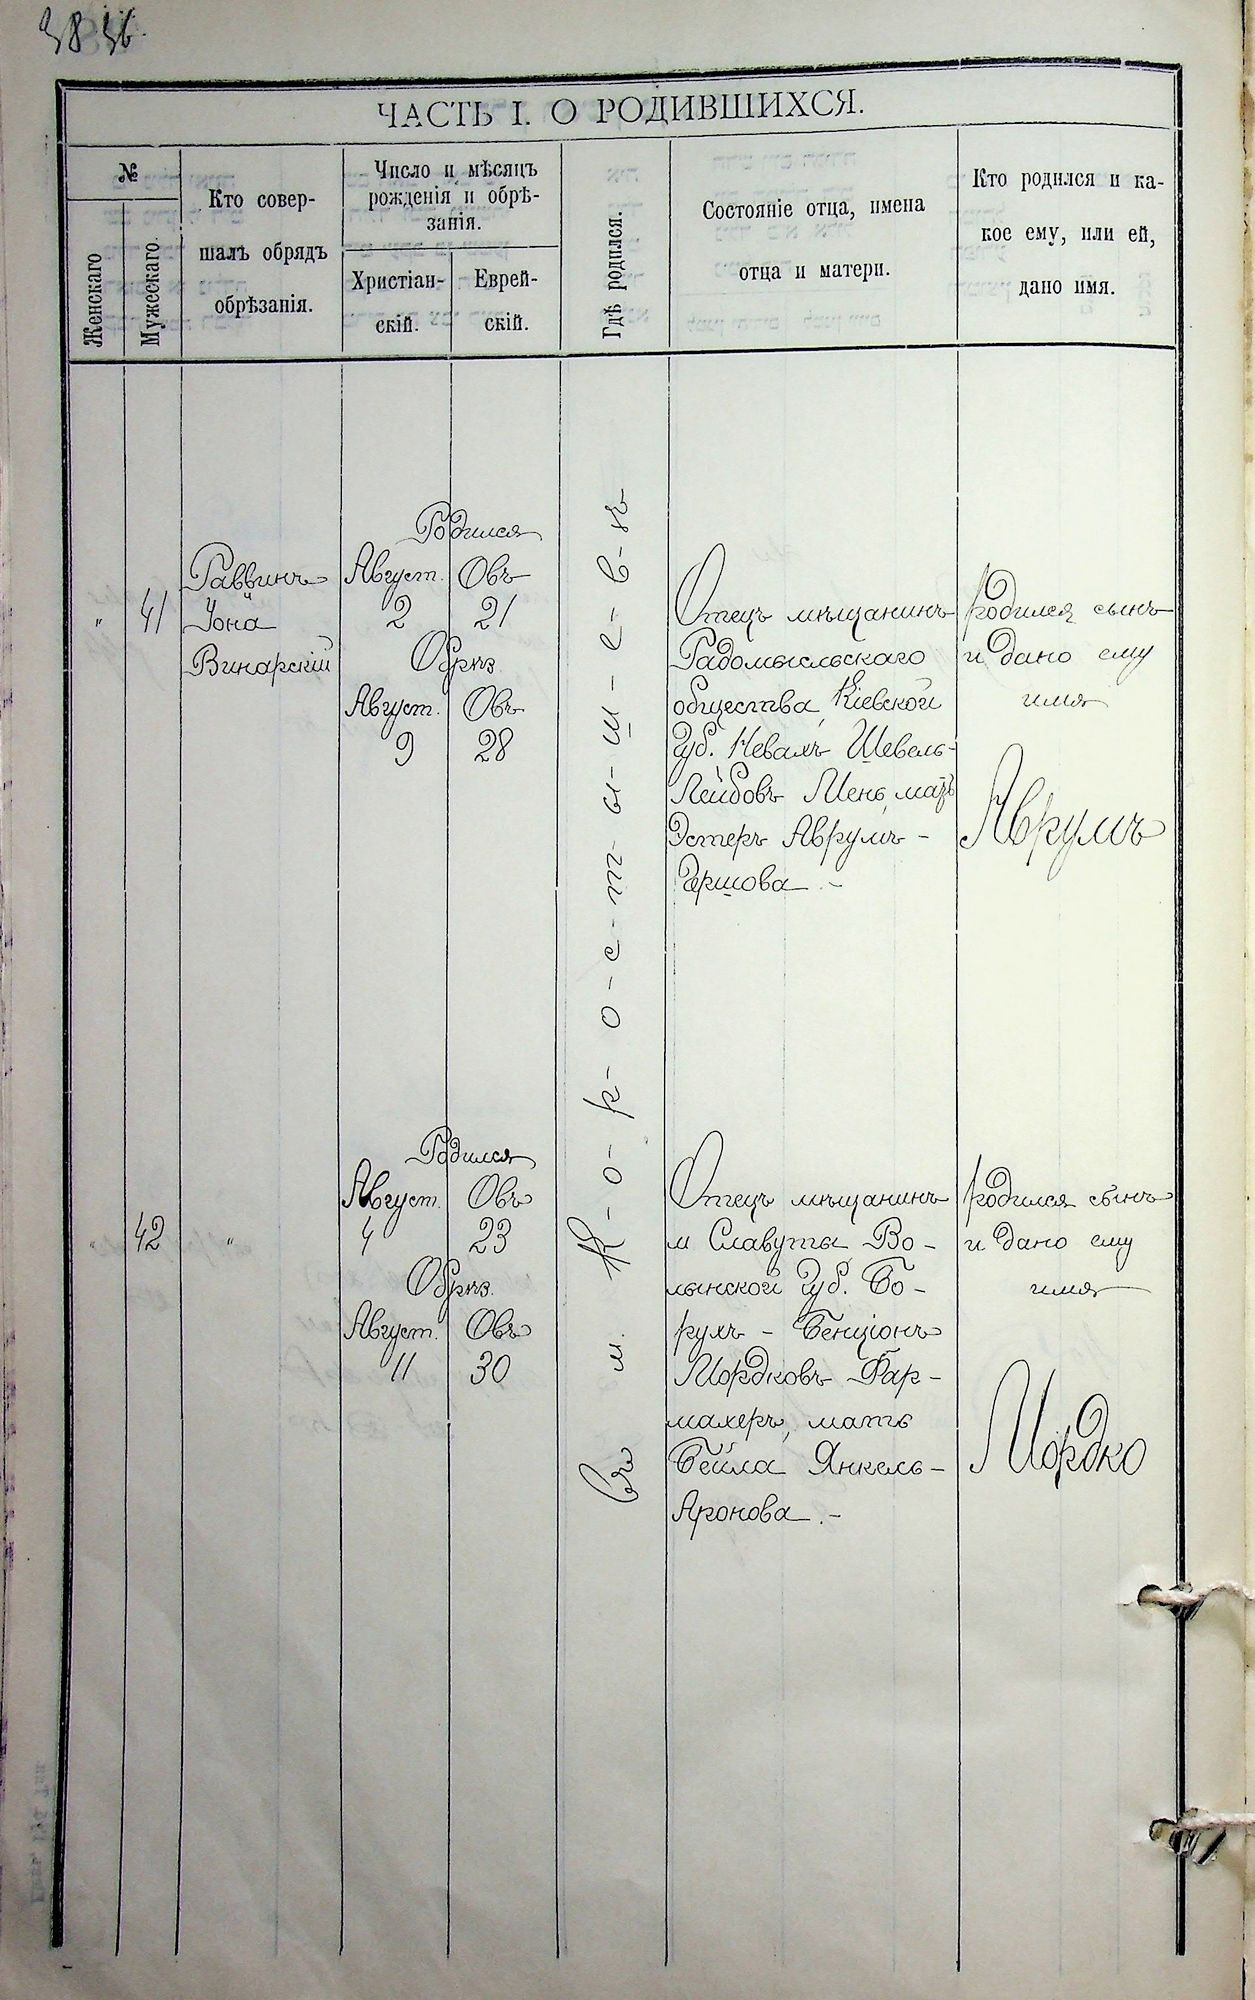 ЧАСТЬ I. О РОДИВШИХСЯ.
№
Женскаго
Мужескаго.
Кто совер-
шалъ обрядъ
обрѣзанія.
Число и мѣсяцъ
рожденія и обрѣ-
занія.
Христіан-
скій.
Еврей-
скій.
Гдѣ родился.
Состояніе отца, имена
отца и матери.
Кто родился и ка-
кое ему, или ей,
дано имя.
"
41
Раввинъ
Іона
Винарскій
Родился
Август. Овъ
2 21
Обрѣз.
Август. Овъ
9 28
Въ м. К-о-р-о-с-т-ы-ш-е-в-ѣ
Отецъ мѣщанинъ
Радомысльскаго
общества, Кіевской
Губ. Шевель-
Лейбовъ Мень, мать
Эстеръ Аврумъ-
Гершова.-
родился сынъ
и дано ему
имя
Аврумъ
"
42
"
Родился
Август. Овъ
4 23
Обрѣз.
Август. Овъ
11 30
Отецъ мѣщанинъ
м Славуты, Во-
лынской Губ. Бо-
рухъ-Бенціонъ
Мордковъ Фар-
махеръ, мать
Бейла Янкель-
Аронова.-
родился сынъ
и дано ему
имя
Мордко